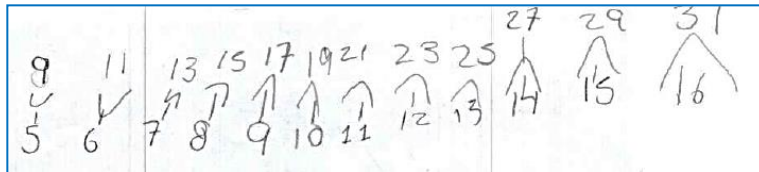 9 11 13 15 17 19 21 23 25 27 29 31
5 6 7 8 9 10 11 12 13 14 15 16